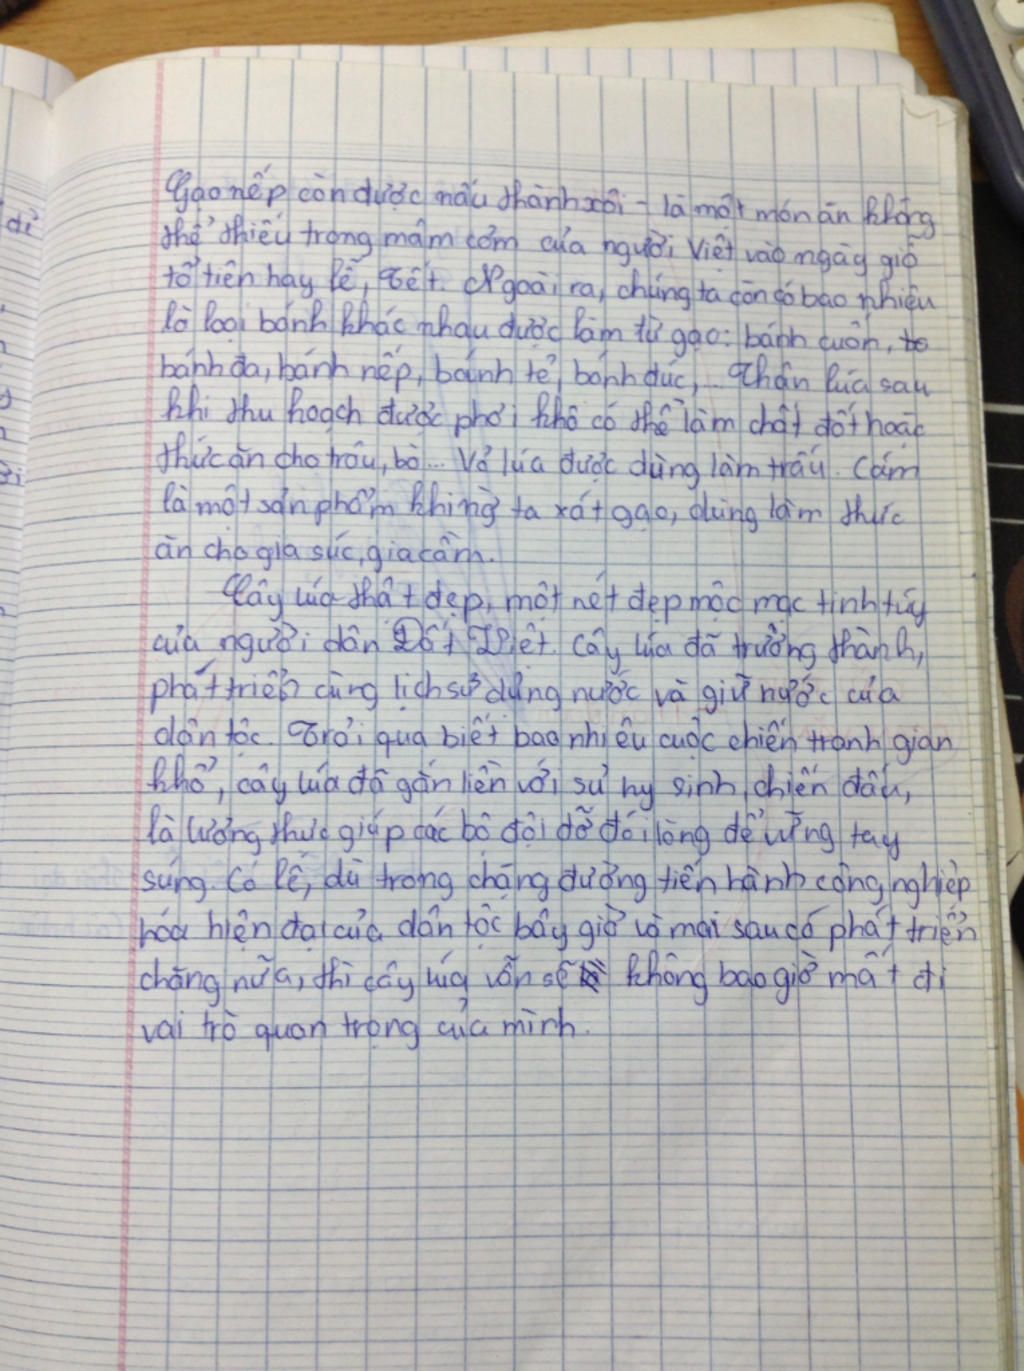 Gạo nếp còn được nấu thành xôi - là một món ăn không
thể thiếu trong mâm cơm của người Việt vào ngày giỗ
tổ tiên hay lễ, Tết. Ngoài ra, chúng ta còn có bao nhiêu
là loại bánh khác nhau được làm từ gạo: bánh cuốn,
bánh đa, bánh nếp, bánh tẻ, bánh đúc,... Thân lúa sau
khi thu hoạch được phơi khô có thể làm chất đốt hoặc
thức ăn cho trâu, bò... Vỏ lúa được dùng làm trấu. Cám
là một sản phẩm khi ng` ta xát gạo, dùng làm thức
ăn cho gia súc, gia cầm.
Cây lúa thật đẹp, một nét đẹp mộc mạc tinh túy
của người dân Đất Việt. Cây lúa đã trưởng thành,
phát triển cùng lịch sử dựng nước và giữ nước của
dân tộc. Trải qua biết bao nhiêu cuộc chiến tranh gian
khổ, cây lúa đã gắn liền với sự hy sinh, chiến đấu,
là lương thực giúp các bộ đội đỡ đói lòng để vững tay
súng. Có lẽ, dù trong chặng đường tiến hành công nghiệp
hóa hiện đại của dân tộc bây giờ và mai sau có phát triển
chăng nữa, thì cây lúa vẫn sẽ không bao giờ mất đi
vai trò quan trọng của mình.